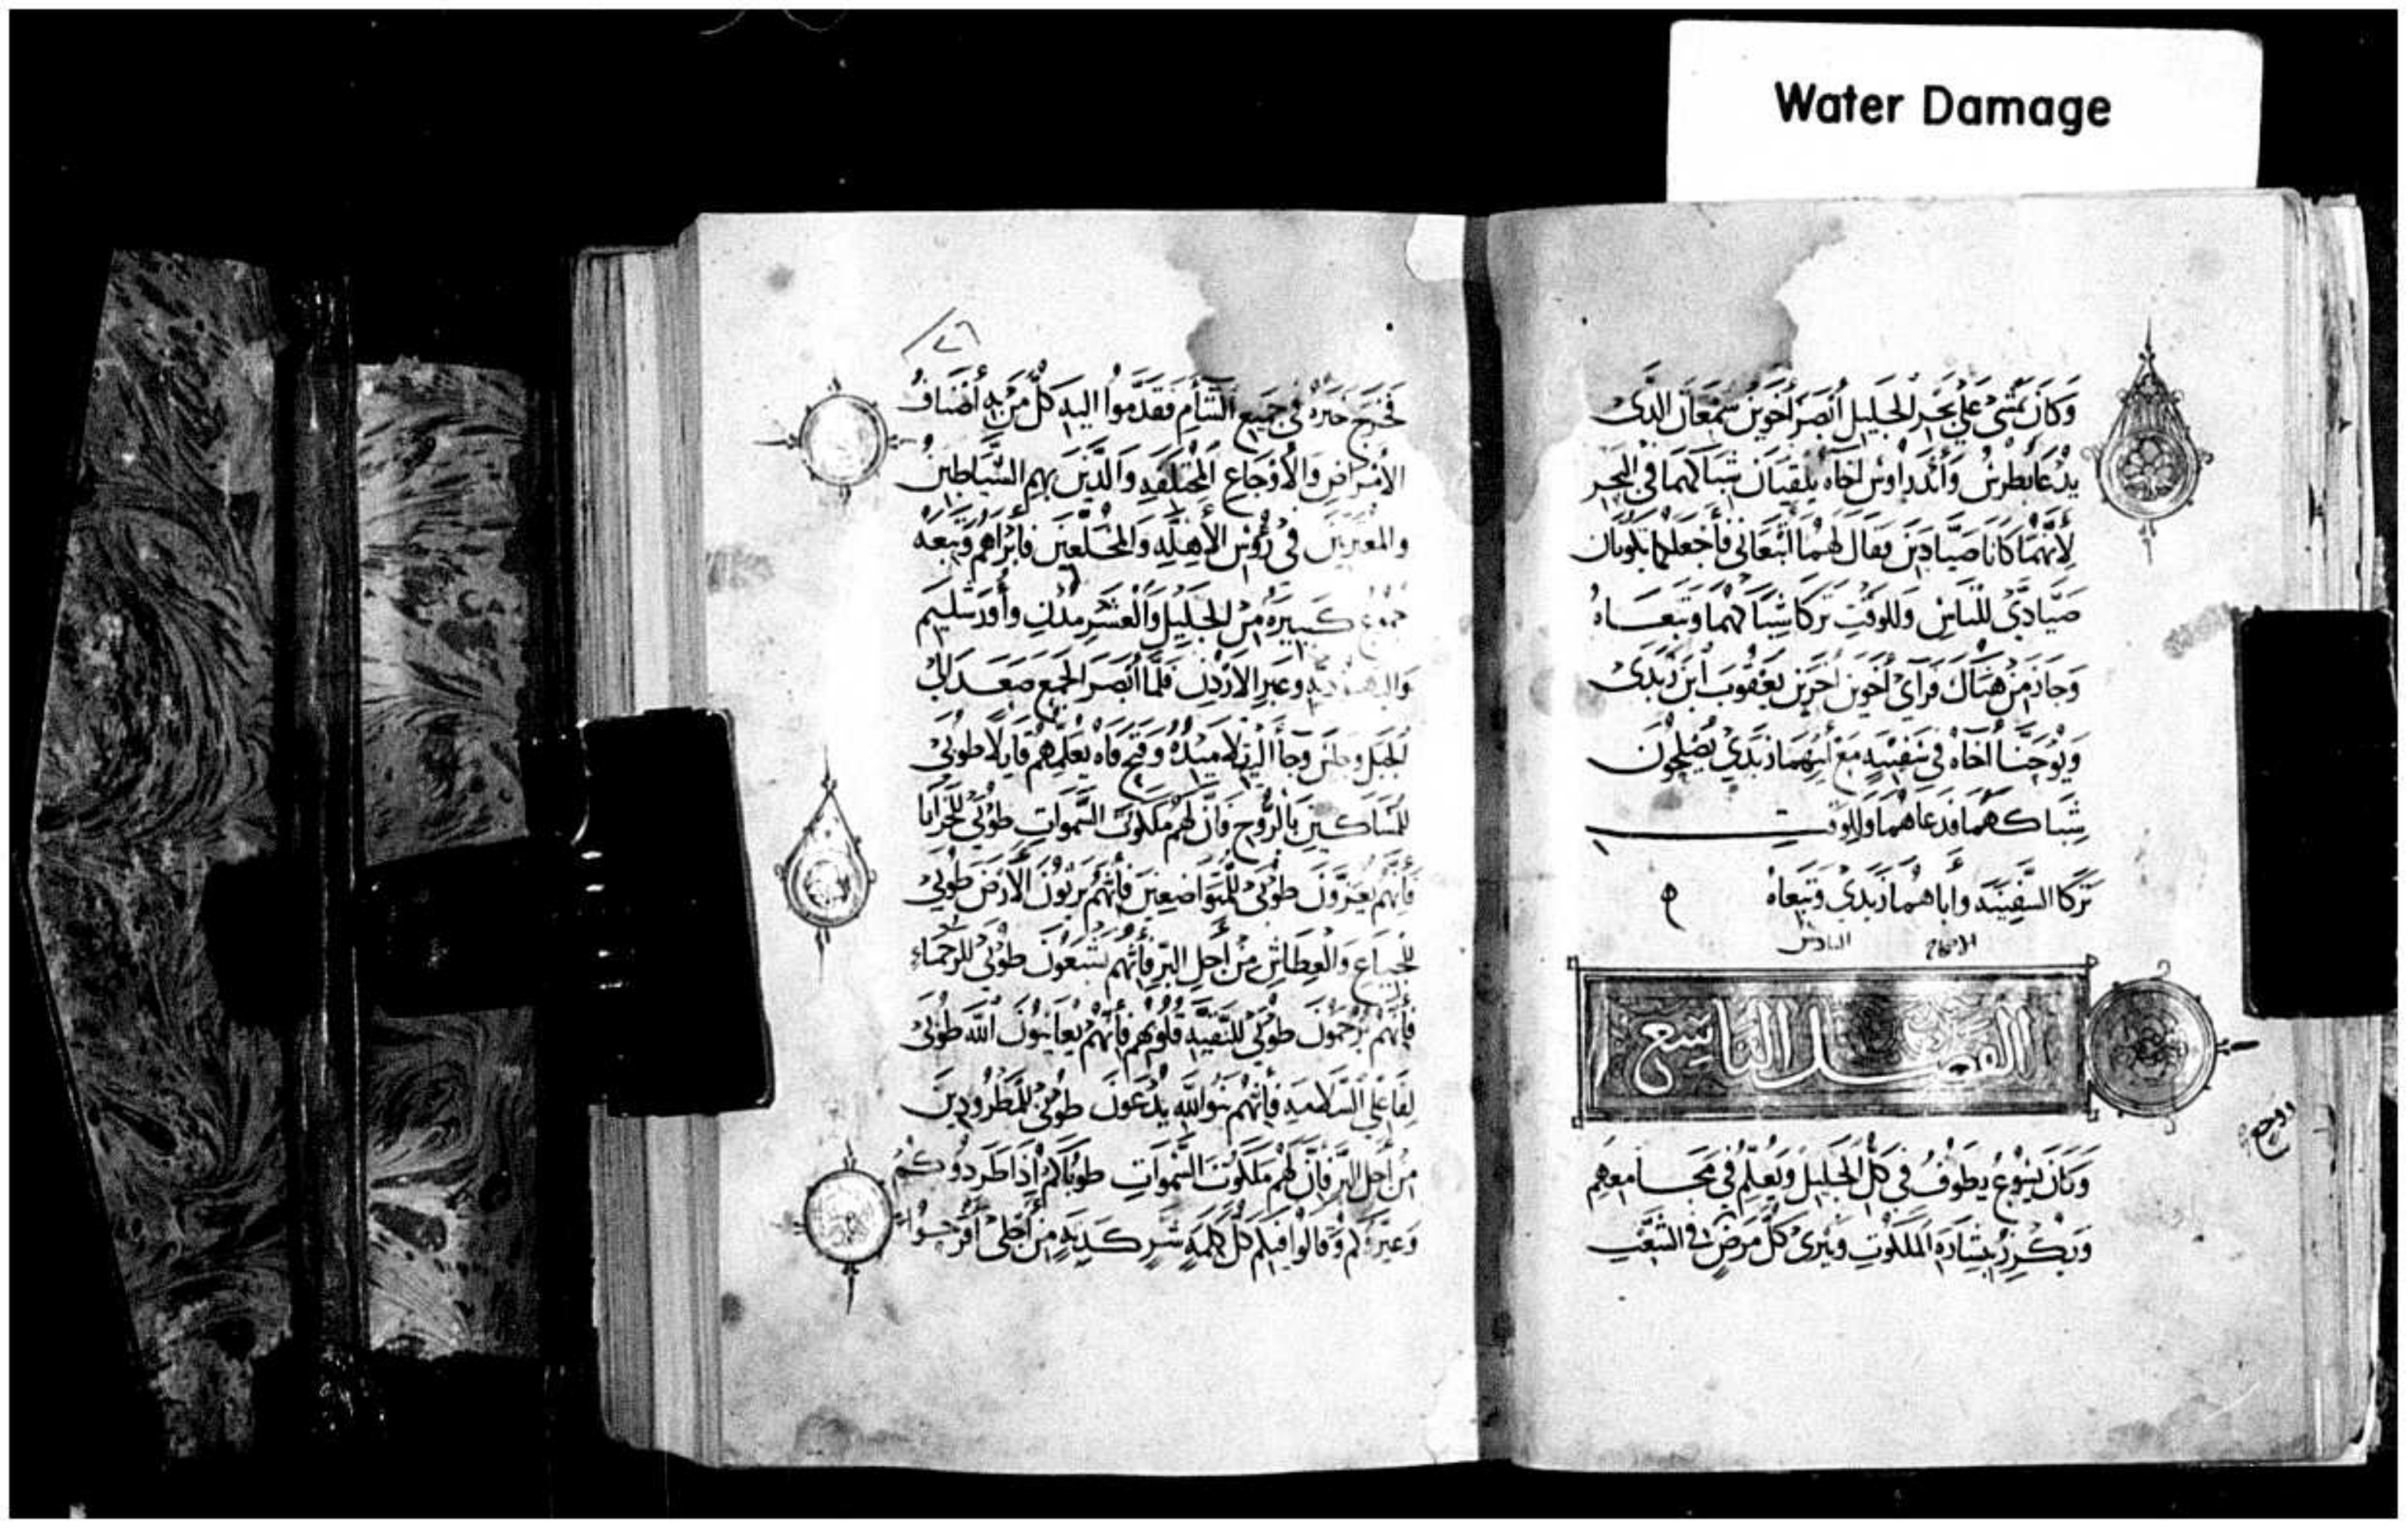 Water Damage
وَكَانَ يَمْشِي عَلَى بَحْرِ الجَلِيلِ أَبْصَرَ أَخَوَيْنِ سِمْعَانَ الذَّي
يُدْعَا بُطْرُسُ وَأَنْدَرَاوُسَ أَخَاه يُلْقِيَانِ شِبَاكَهُمَا فِي البَحْرِ
لِأَنَّهُمَا كَانَا صَيَّادَيْنِ فَقَالَ لَهُمَا اتْبَعَانِي فَأَجْعَلْكُمَا تَكُونَان
صَيَّادَيْ لِلنَّاسِ وَلِلوَقْتِ تَرَكَا شِبَاكَهُمَا وَتَبِعَاهُ
وَجَازَ مِنْ هُنَاكَ فَرَأَى أَخَوَيْنِ أُخَرَيْنِ يَعْقُوبَ ابْنَ زَبَدَى
وَيُوحَنَّا أَخَاهُ فِي سَفِينَهٍ مَعَ أَبِيهِمَا زَبَدِي يُصْلِحُونَ
شِبَاكَهُمَا فَدَعَاهُمَا وَلِلوَقتِ
تَرَكَا السَّفِينَه وَأَبَاهُمَا زَبَدِي وَتَبِعَاهُ
الاصحاح السادس
الفصل التاسع
وَكَانَ يَسُوعُ يَطُوفُ فِي كُلِّ الجَلِيلِ وَيُعَلِّمُ فِي مَجَامِعِهِم
وَيَكْرِزُ بِبِشَارَةِ المَلَكُوتِ وَيُبْرِئ كُلَّ مَرَضٍ فِي الشَّعْبِ
٧٦
فَخَرَجَ خَبَرُهُ فِي جَمِيعِ الشَّأمِ فَقَدَّمُوا إِلَيهِ كُلَّ مَنْ بِهِ أَصْنَافُ
الأَمْرَاضِ وَالأَوْجَاعِ المُخْتَلِفَهِ وَالَّذِينَ بِهِمِ الشَّيَاطِينُ
والمُعْتَرِينَ فِي رُؤُسِ الأَهِلَّهِ وَالمُخَلَّعِينَ فَأَبْرَاهُم وَتَبِعَهُ
جُمُوع كَبِيرَه مِنَ الجَلِيلِ وَالْعَشْرِ مُدُنِ وَأُورَشَلِيم
وَاليَهُودِيَّهِ وَعَبرِ الأُرْدُنِ فَلَمَّا أَبْصَرَ الجَمْعَ صَعَدَ إِلَى
الجَبَلِ وَجَلَسَ وَجَأَ إِلَيْهِ تَلامِيذُهُ وَفَتَحَ فَاهُ يُعَلِّمُهُم قَايِلًا طُوبَى
لِلمَسَاكِينِ بِالرُّوحِ فَإِنَّ لَهُمْ مَلَكُوتَ السَّمَوَاتِ طُوبَى لِلحَزَانَا
فَإِنَّهُم يُعَزَّوْنَ طُوبَى لِلمُتَوَاضِعِينَ فَإِنَّهُمْ يَرِثُونَ الأَرْضَ طُوبَى
لِلجِيَاعِ وَالْعِطَاشِ مِنْ أَجْلِ البِرِّ فَإِنَّهُم يَشْبَعُونَ طُوبَى لِلرُّحَمَاءِ
فَإِنَّهُمْ يُرْحَمُونَ طُوبَى لِلنَّقِيَّهِ قُلُوبُهُم فَإِنَّهُمْ يُعَايِنُونَ اللَّهَ طُوبَى
لِفَاعِلِي السَّلَامَهِ فَإِنَّهُمْ بَنُو اللَّهِ يُدْعَوْنَ طُوبَى لِلمَطْرُودِينَ
مِنْ أَجْلِ البِرِّ فَإِنَّ لَهُمْ مَلَكُوتَ السَّمَوَاتِ طُوبَاكُمْ إِذَا طَرَدُوكُمْ
وَعَيَّرُوكُمْ وَقَالُوا فِيكُمْ كُلَّ كَلِمَةِ شَرٍّ كَذِبَه مِنْ أَجْلِي افْرَحُوا